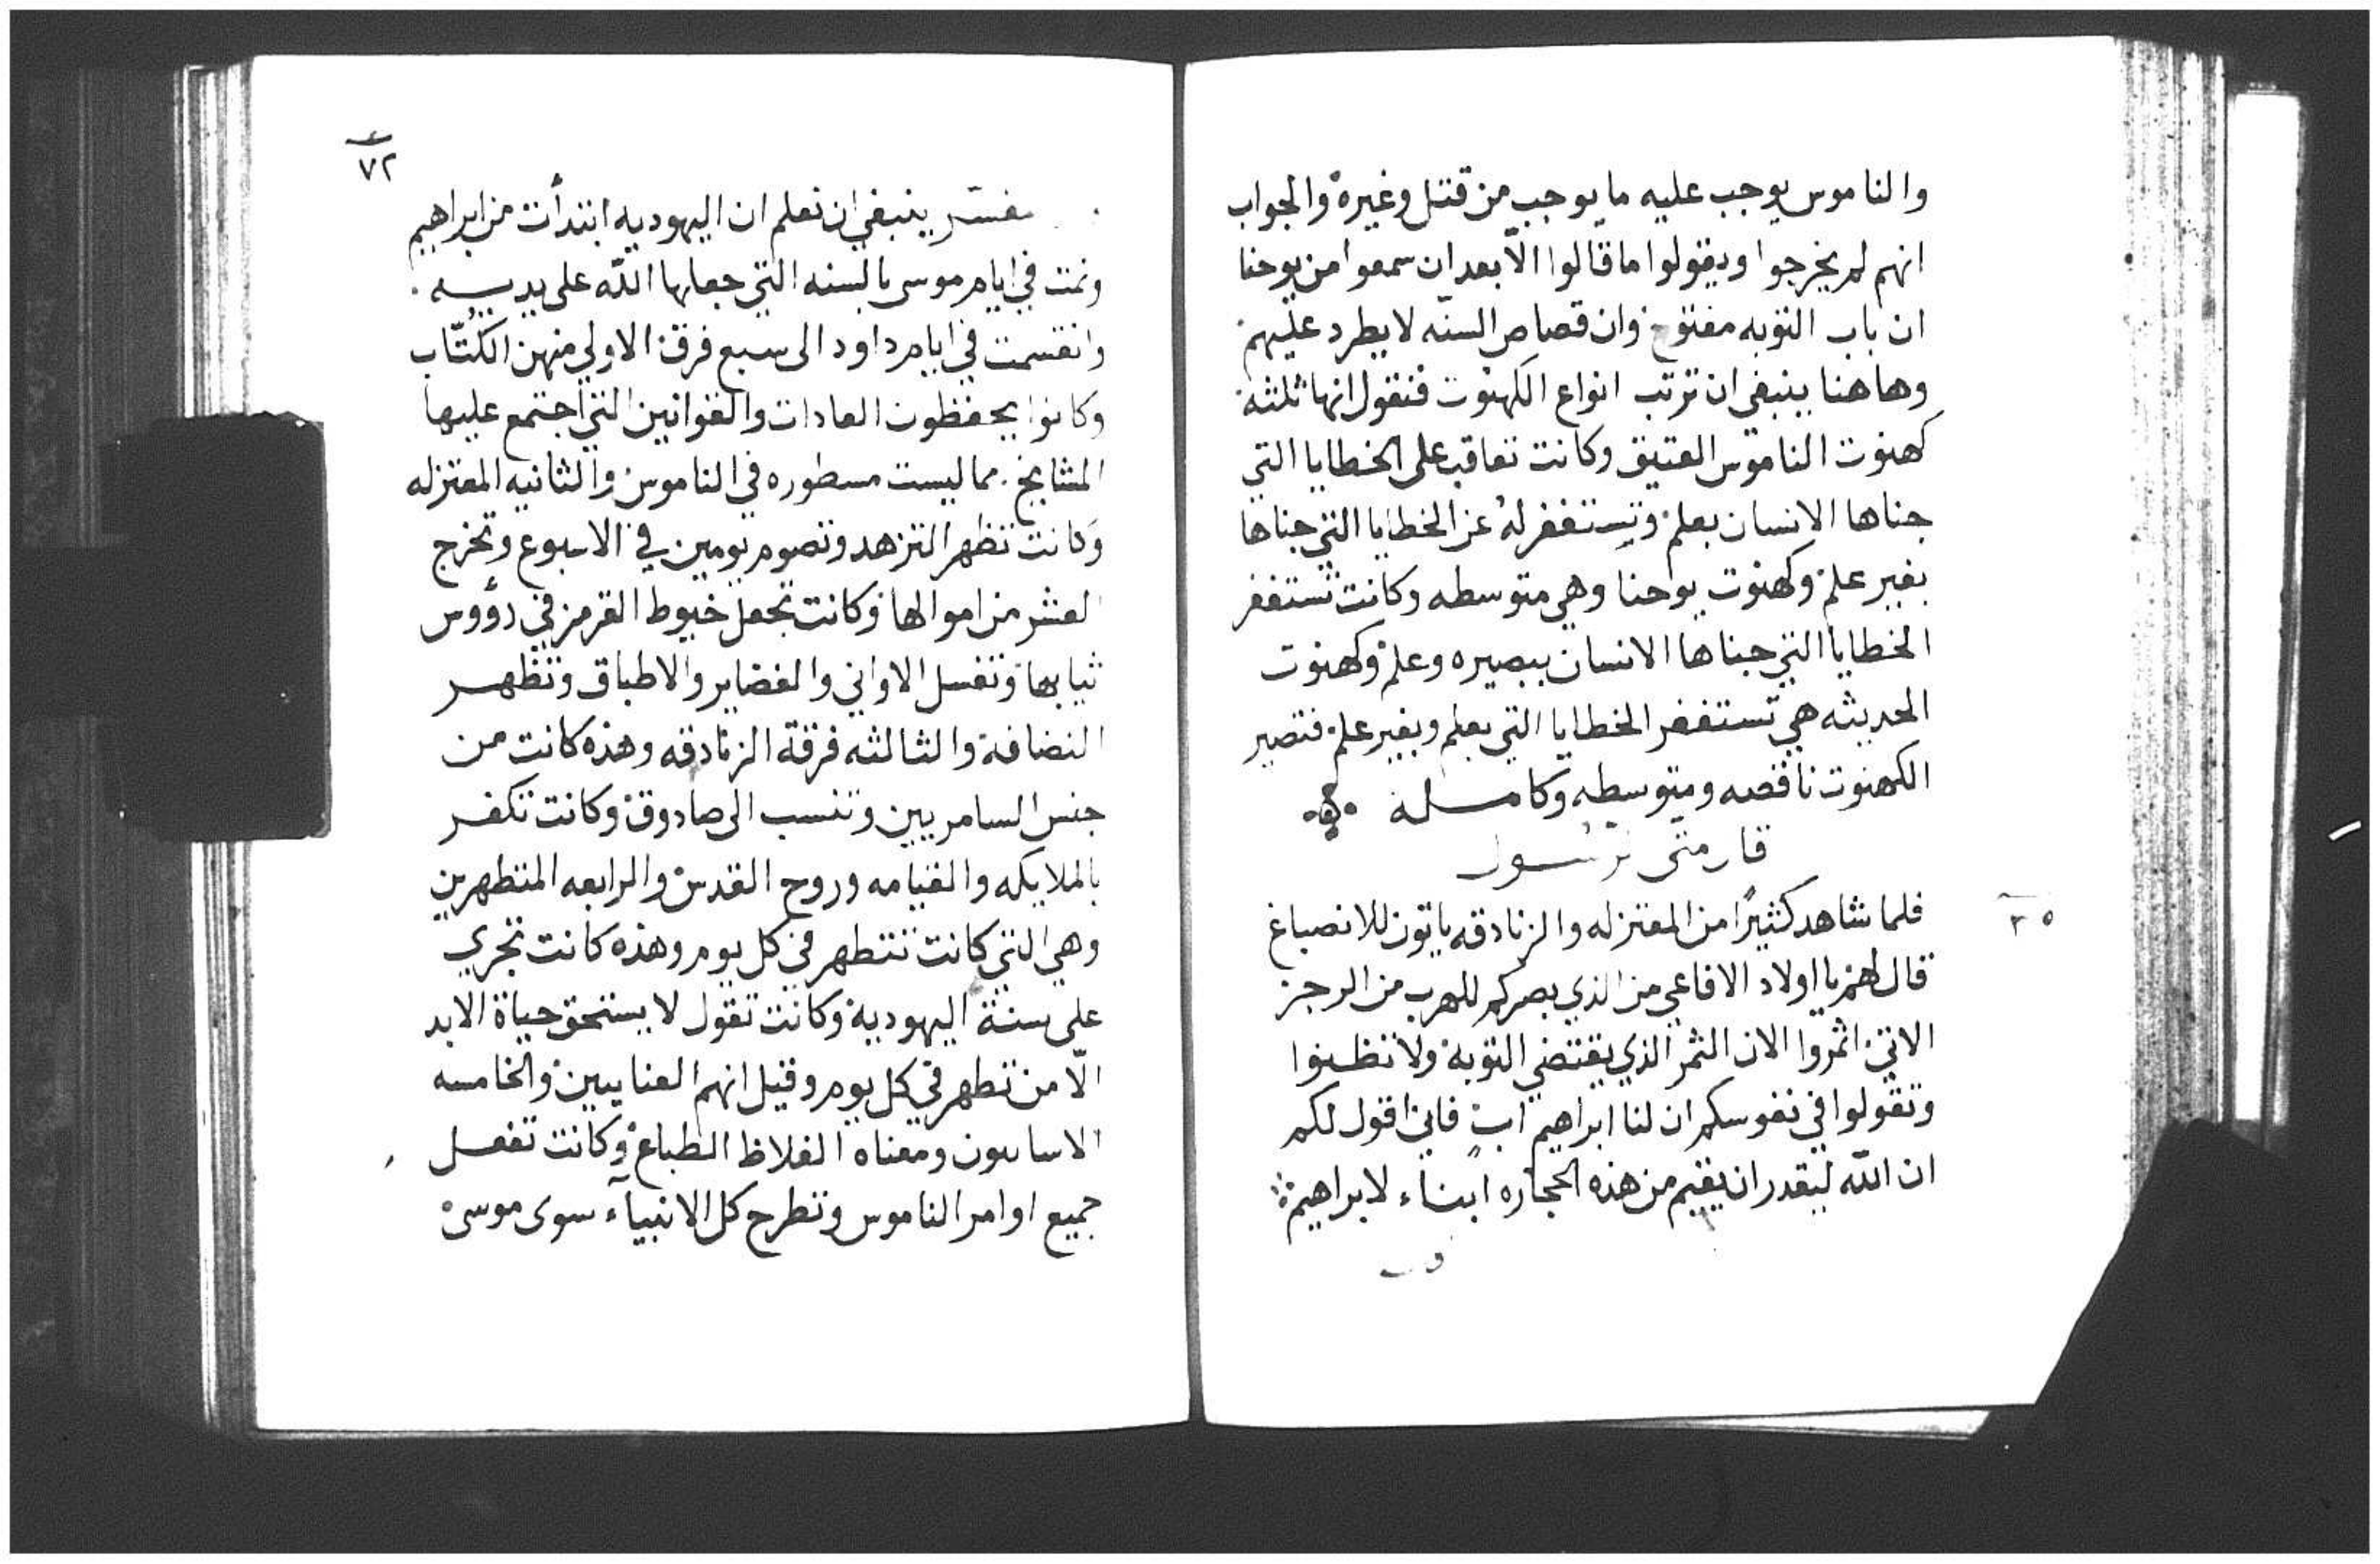 والناموس يوجب عليه ما يوجب من قتل وغيره والجواب
انهم لم يخرجوا ويقولوا ما قالوا الّا بعد ان سمعوا من يوحنا
ان باب التوبه مفتوح وان قصاص السنّه لا يطرد عليهم
وهاهنا ينبغي ان نرتب انواع الكهنوت فنقول انها ثلثة
كهنوت الناموس العتيق وكانت تعاقب على الخطايا التي
جناها الانسان بعلم وتستغفر له عن الخطايا التي جناها
بغير علم وكهنوت يوحنا وهي متوسطه وكانت تستغفر
الخطايا التي جناها الانسان ببصيره وعلم وكهنوت
الحديثه هي تستغفر الخطايا التي بعلم وبغير علم فتصير
الكهنوت ناقصه ومتوسطه وكاملة
قال متى الرسول
فلما شاهد كثيرًا من المعتزله والزنادقه ياتون للانصباغ
قال لهم يا اولاد الافاعي من الذي بصركم للهرب من الرجز
الاتي اثمروا الان الثمر الذي يقتضي التوبة ولا تظنوا
وتقولوا في نفوسكم ان لنا ابراهيم ابٍ فاني اقول لكم
ان اللّه ليقدر ان يقيم من هذه الحجاره ابناء لابراهيم
٧٢
مفسّر ينبغي ان نعلم ان اليهوديه ابتدأت من ابراهيم
وتمت في ايام موسى بالسنه التي جعلها اللّه على يديه
وانقسمت في ايام داود الى سبع فرق الاولي منهن الكُتّاب
وكانوا يحفظون العادات والقوانين التي اجتمع عليها
المشايخ مما ليست مسطوره في الناموس والثانيه المعتزله
وكانت تظهر التزهد وتصوم يومين في الاسبوع وتخرج
العشر من اموالها وكانت تجعل خيوط القرمز في رؤوس
ثيابها وتغسل الاواني والغضاير والاطباق وتظهر
النضافة والثالثه فرقة الزنادقه وهذه كانت من
جنس السامريين وتنسب الى صادوق وكانت تكفر
بالملايكه والقيامه وروح القدس والرابعه المتطهرين
وهي التي كانت تتطهر في كل يوم وهذه كانت تجري
على سنة اليهودية وكانت تقول لا يستحق حياة الابد
الّا من تطهر في كل يوم وقيل انهم العنابيين والخامسه
ومعناه الغلاظ الطباع وكانت تفعل
جميع اوامر الناموس وتطرح كل الانبيآء سوى موسى